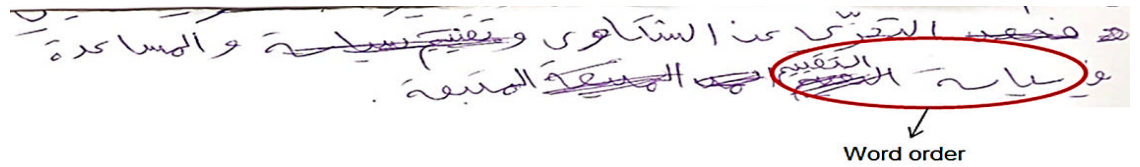 فحص التحرّي عن الشكاوى وتقييم سياسة والمساعدة
في سياسة التقييم المتبعة.
Word order